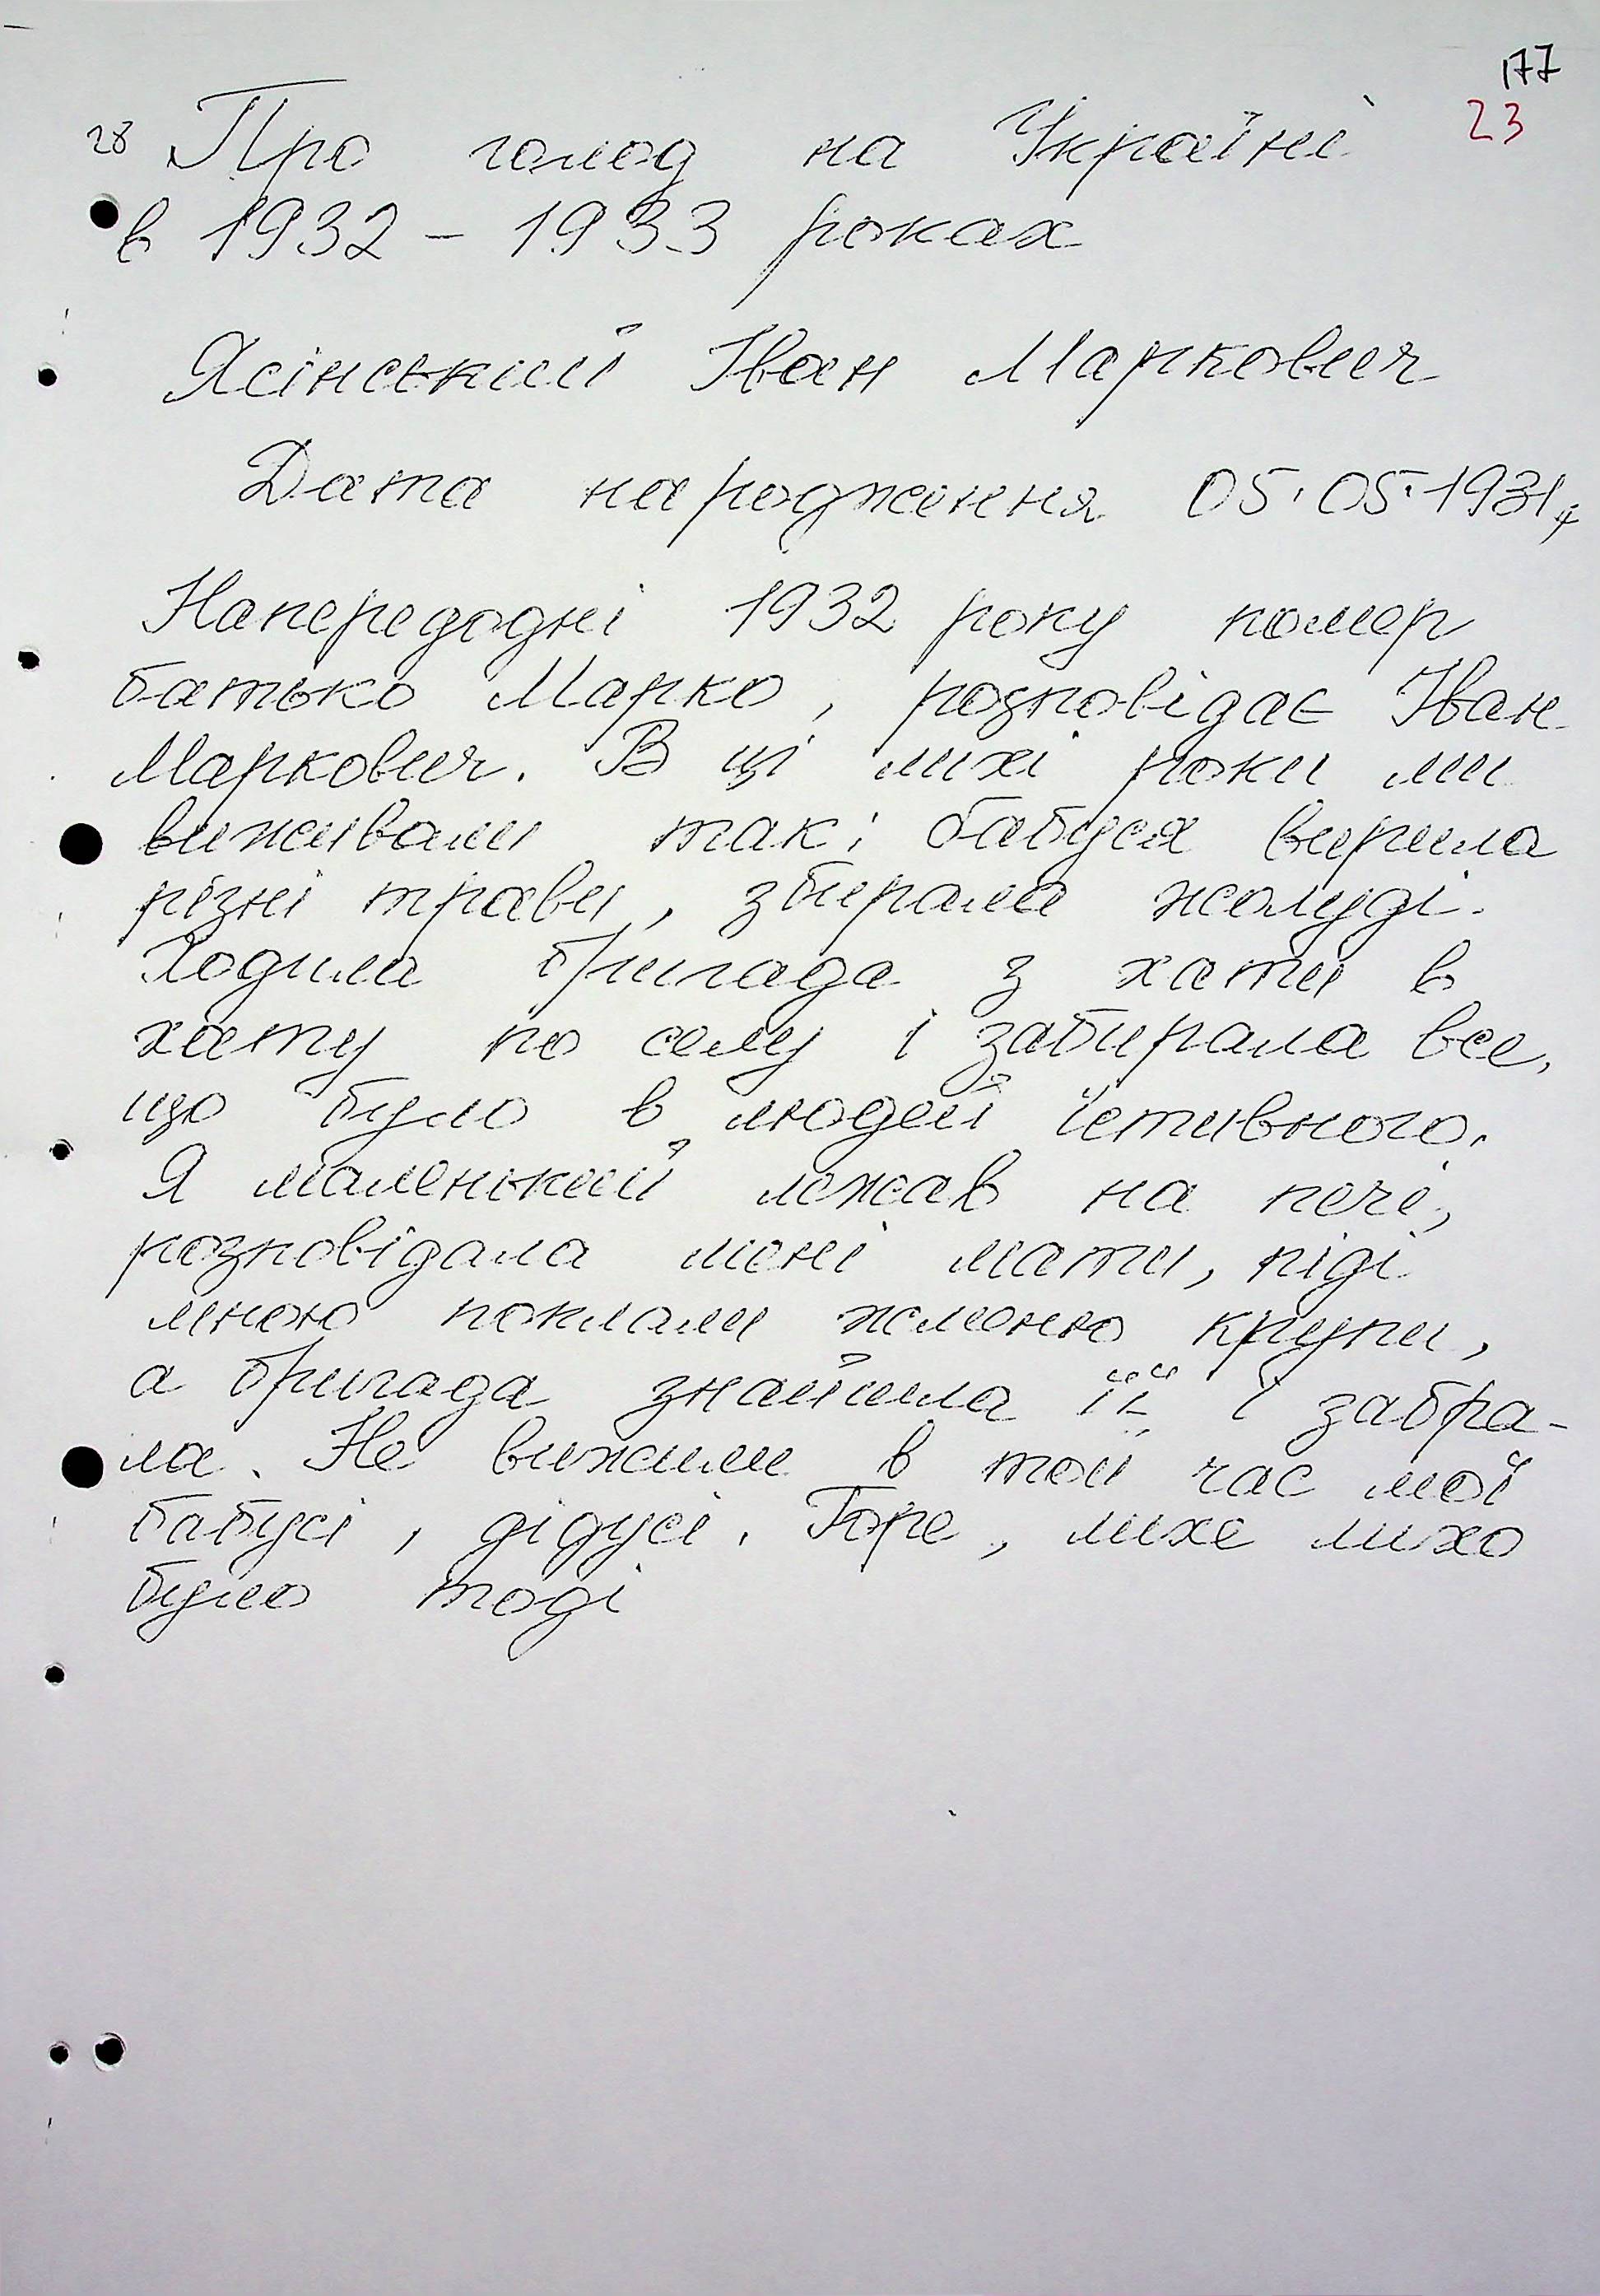 177
23
28 Про голод на Україні
в 1932 - 1933 роках
Ясінський Іван Маркович
Дата народження 05.05.1931р
Напередодні 1932 року помер
батько Марко, розповідає Іван
Маркович. В ці лихі роки ми
виживали так: бабуся варила
різні трави, збирала жолуді.
Ходила бригада з хати в
хату по селу і забирала все,
що було в людей їстивного.
Я маленький лежав на печі,
розповідала мені мати, піді
мною поклали жменю крупи,
а бригада знайшла її і забра-
ла. Не вижили в той час мої
бабусі, дідусі. Горе, лихе лихо
було тоді